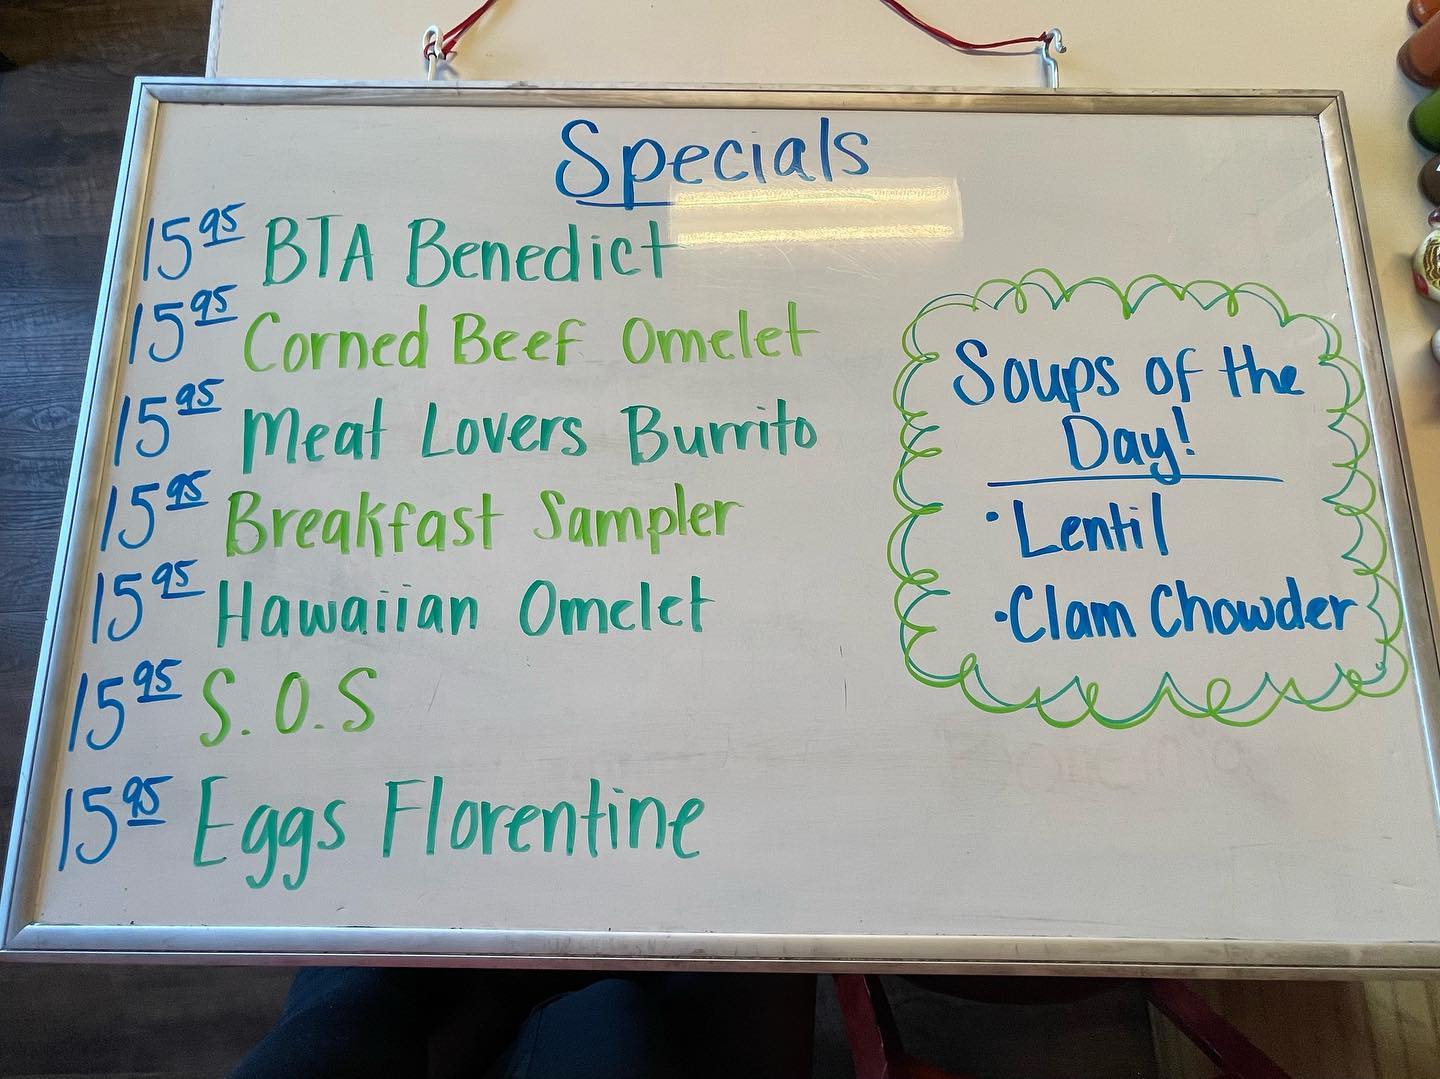 Specials
15.95 BTA Benedict
15.95 Corned Beef Omelet
15.95 Meat Lovers Burrito
15.95 Breakfast Sampler
15.95 Hawaiian Omelet
15.95 S.O.S
15.95 Eggs Florentine
Soups of the
Day!
· Lentil
· Clam Chowder